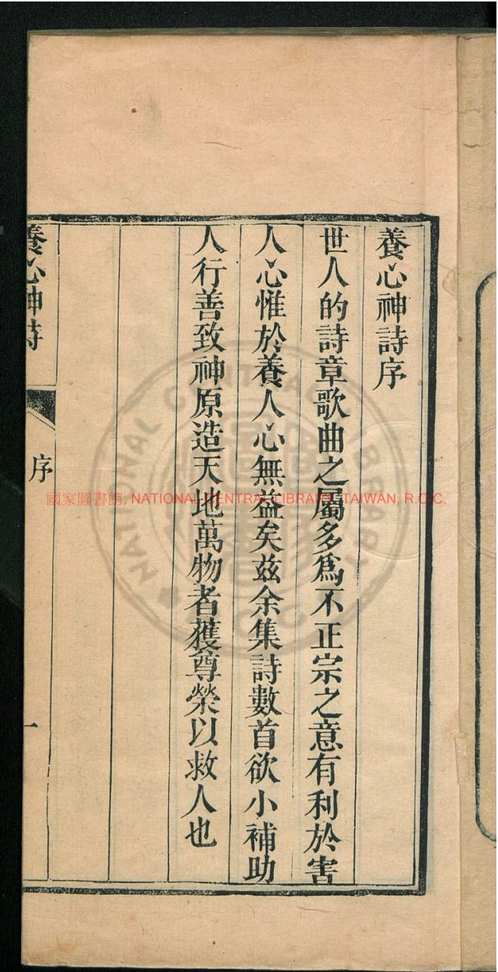 養心神詩序
世人的詩章歌曲之屬多爲不正宗之意有利於害
人心惟於養人心無益矣兹余集詩數首欲小補助
人行善致神原造天地萬物者獲尊榮以救人也
養心神詩
序
一
國家圖書館, NATIONAL CENTRAL LIBRARY, TAIWAN, R.O.C.
NATIONAL CENTRAL LIBRARY